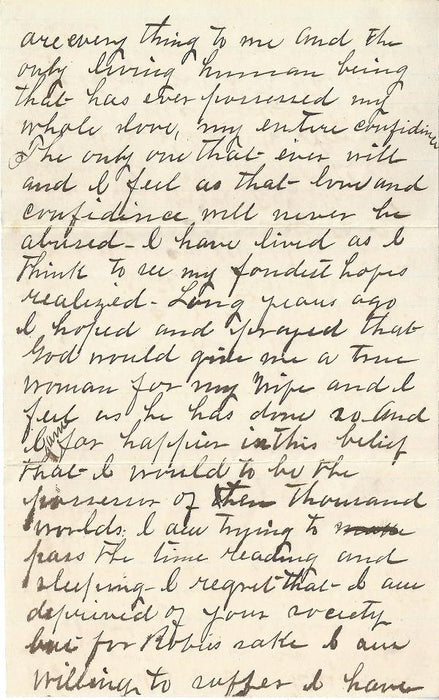 are every thing to me and the
only living human being
that has ever possessed my
whole love, my entire confidence
The only one that ever will
and I feel as that love and
confidence will never be
abused - I have lived as I
think to see my fondest hopes
realized - Long years ago
I hoped and prayed that
God would give me a true
woman for my Wife and I
feel as he has done so and
I am far happier in this belief
that I would to be the
possessor of then thousand
worlds. I am trying to make
pass the time reading and
sleeping - I regret that I am
deprived of your society
but for Robies sake I am
willing to suffer I have